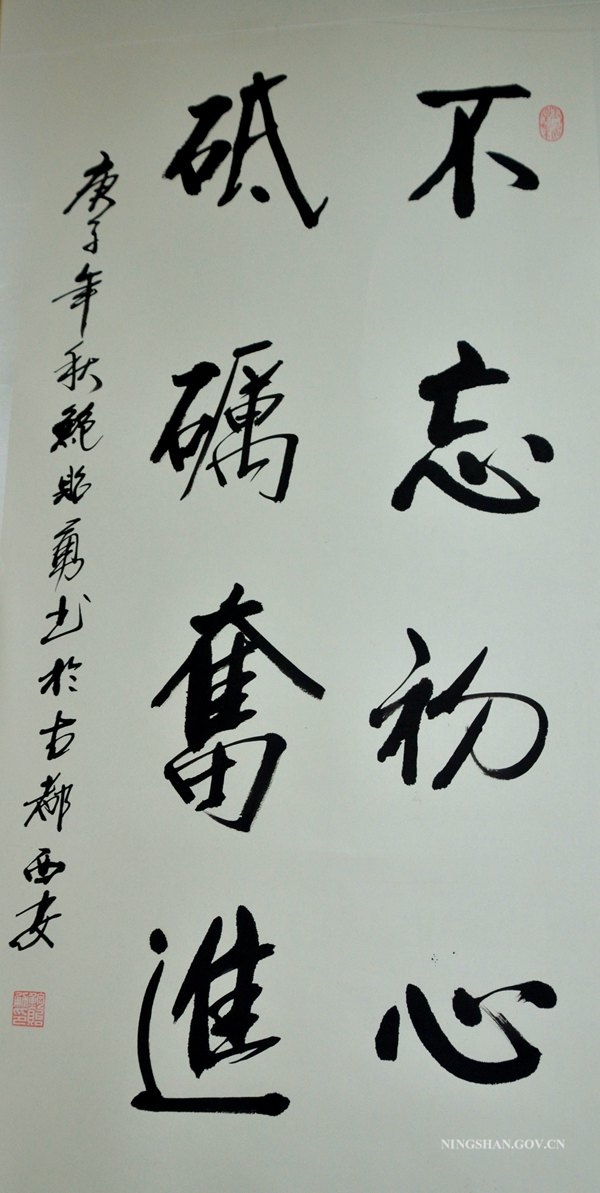 不忘初心
砥礪奮進
庚子年秋鮑貽勇书於古都西安
NINGSHAN.GOV.CN